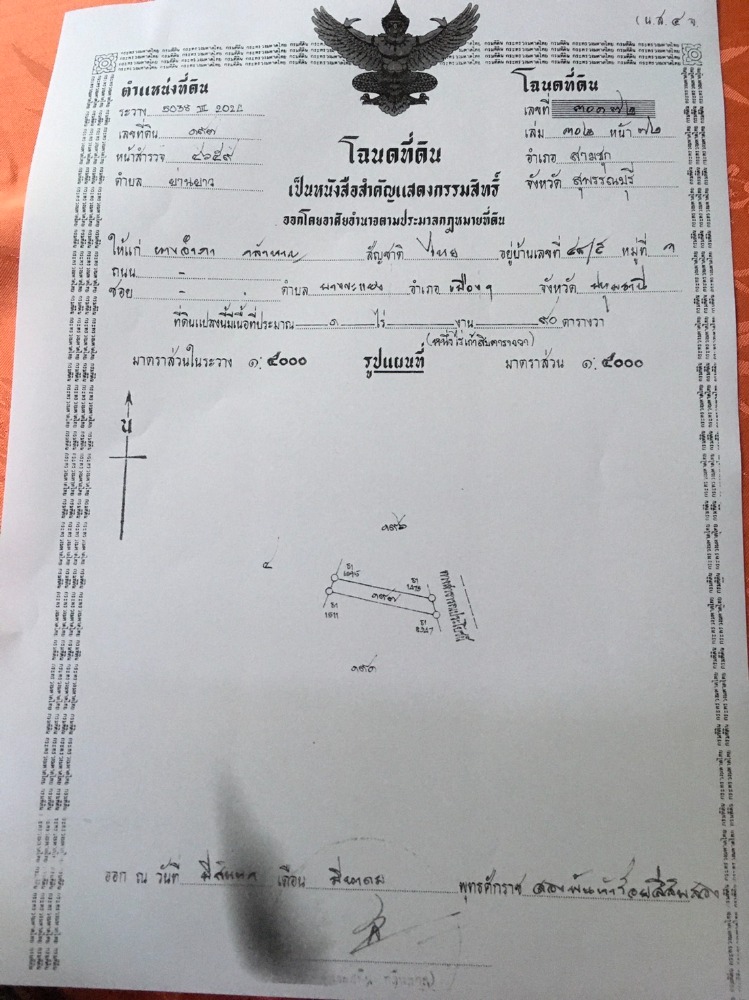 (น.ส. ๔ จ
ตำแหน่งที่ดิน
ระวาง 5038 III 2022
เลขที่ดิน
หน้าสำรวจ ๔๖๕๙
ตำบล ย่านยาว
โฉนดที่ดิน
เลขที่
เล่ม ๓๐๒ หน้า ๗๒
อำเภอ สามชุก
จังหวัด สุพรรณบุรี
โฉนดที่ดิน
เป็นหนังสือสำคัญแสดงกรรมสิทธิ์
ออกโดยอาศัยอำนาจตามประมวลกฎหมายที่ดิน
ให้แก่ สัญชาติ ไทย อยู่บ้านเลขที่ หมู่ที่ ๑
ถนน -
ซอย - ตำบล บางขะแยง อำเภอ เมืองฯ จังหวัด ปทุมธานี
ที่ดินแปลงนี้มีเนื้อที่ประมาณ ๑ ไร่ งาน ๙๐ ตารางวา
(หนึ่งไร่เก้าสิบตารางวา)
มาตราส่วนในระวาง ๑: ๔๐๐๐ รูปแผนที่ มาตราส่วน ๑: ๔๐๐๐
น
๔
ทางสาธารณประโยชน์
ออก ณ วันที่ ยี่สิบหก เดือน มีนาคม พุทธศักราช สองพันห้าร้อยสี่สิบสอง